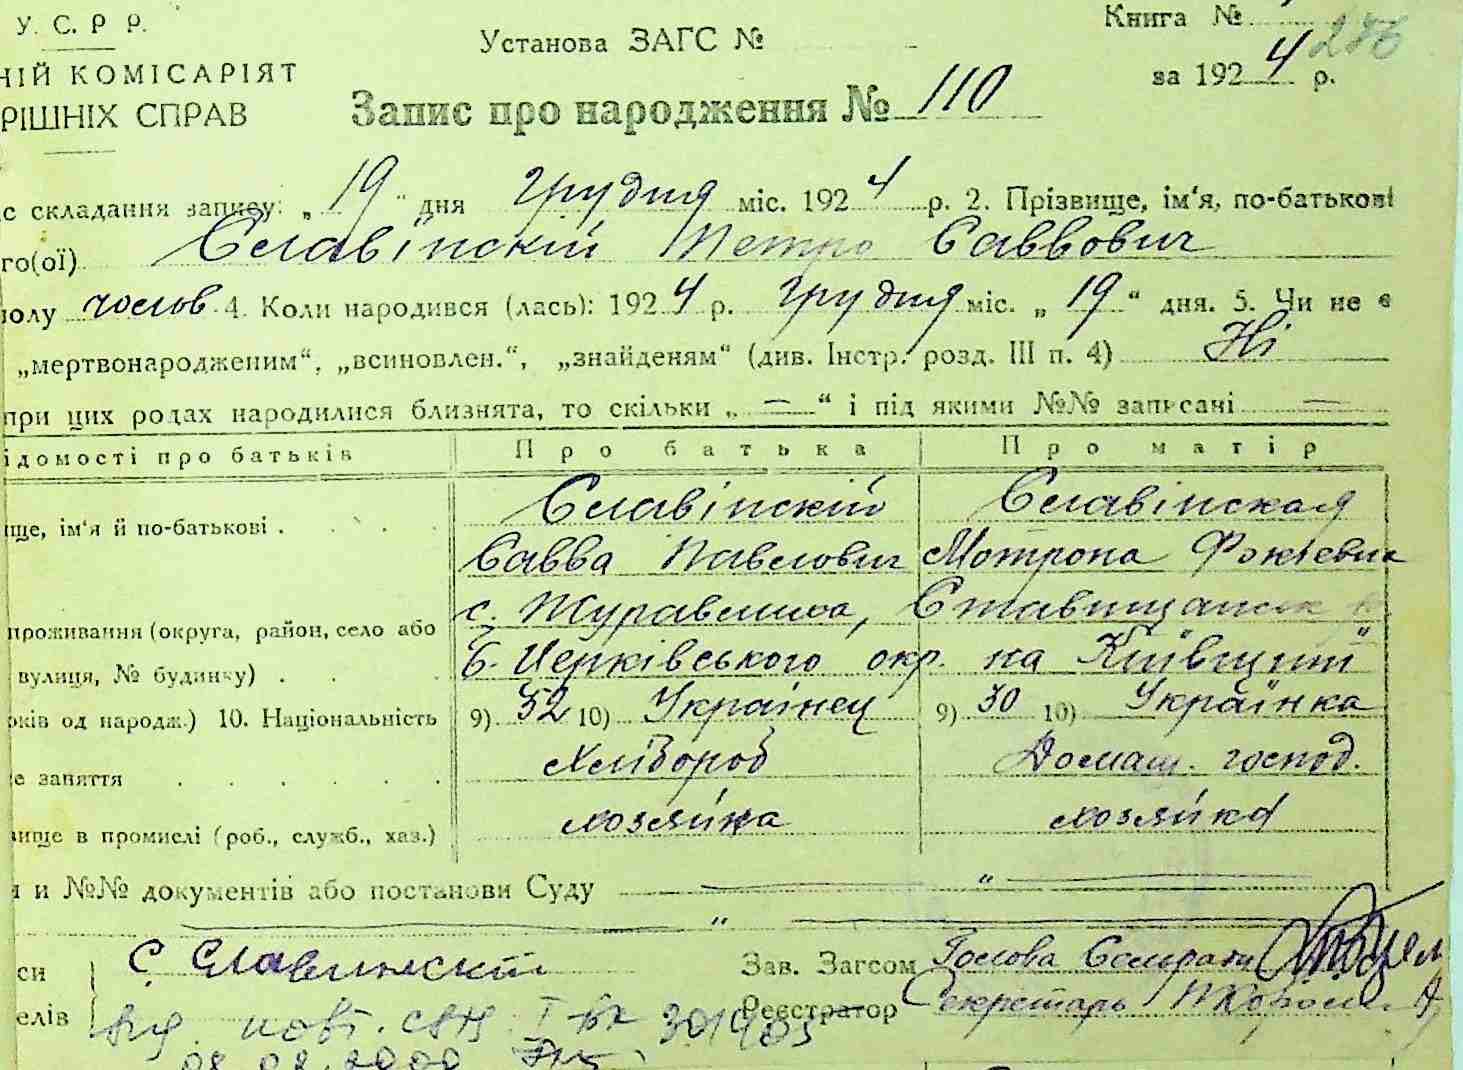 У. С. Р Р.
Установа ЗАГС №
Книга №
НІЙ КОМІСАРІЯТ
за 1924 р.
РІШНІХ СПРАВ
Запис про народження № 110
с складання запису: „19“ дня грудня міс. 1924 р. 2. Прізвище, ім‘я, по-батькові
го(ої) Славінскій Петро Саввович
полу чолов 4. Коли народився (лась): 1924 р. грудня міс. „19“ дня. 5. Чи не є
„мертвонародженим“, „всиновлен.“, „знайденям“ (див. Інстр. розд. III п. 4) Ні
при цих родах народилися близнята, то скільки „—“ і під якими №№ записані —
ідомості про батьків Про батька Про матір
Славінскій Славінская
ище, ім‘я й по-батькові .
Савва Павлович Мотрона Фокіевна
с. Журавлиха, Ставищанськ
проживання (округа, район, село або
Б-Церківського окр. на Київщині
вулиця, № будинку) .
оків од народж.) 10. Національність 9) 32 10) Українец 9) 30 10) Українка
Хлібороб Домаш. господ.
е заняття
хозяйка хозяйка
вище в промислі (роб., служб., хаз.)
и №№ документів або постанови Суду — „ —
„
си С Славинскій Зав. Загсом Голова Сельради
елів Реєстратор Секретарь